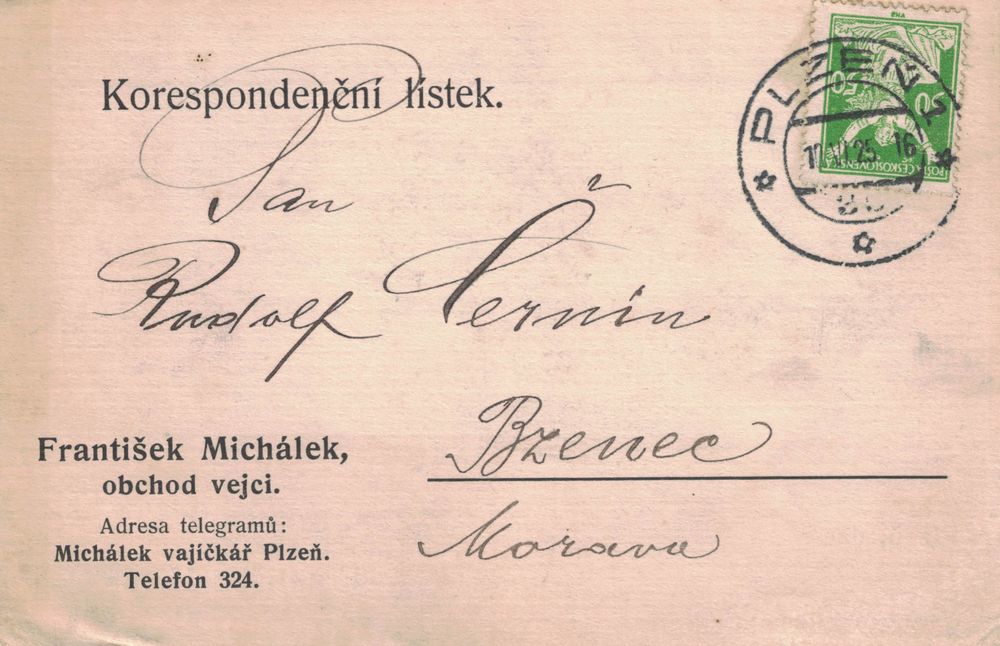 Korespondenční lístek.
Pan
Rudolf Černín
Bzenec
Morava
František Michálek,
obchod vejci.
Adresa telegramů:
Michálek vajíčkář Plzeň.
Telefon 324.
PLZEŇ 1
VI 25 16
POŠTA ČESKOSLOVENSKÁ
50 50